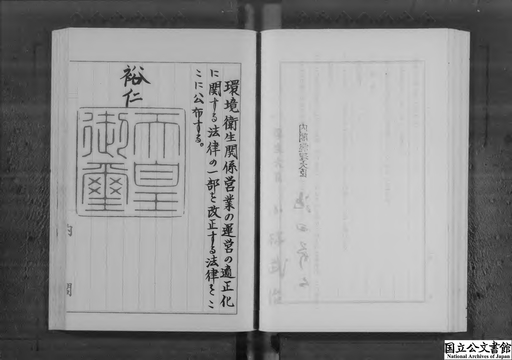 環境衛生関係営業の運営の適正化
に関する法律の一部を改正する法律をこ
こに公布する。
裕仁
天皇
御璽
内閣
国立公文書館
National Archives of Japan